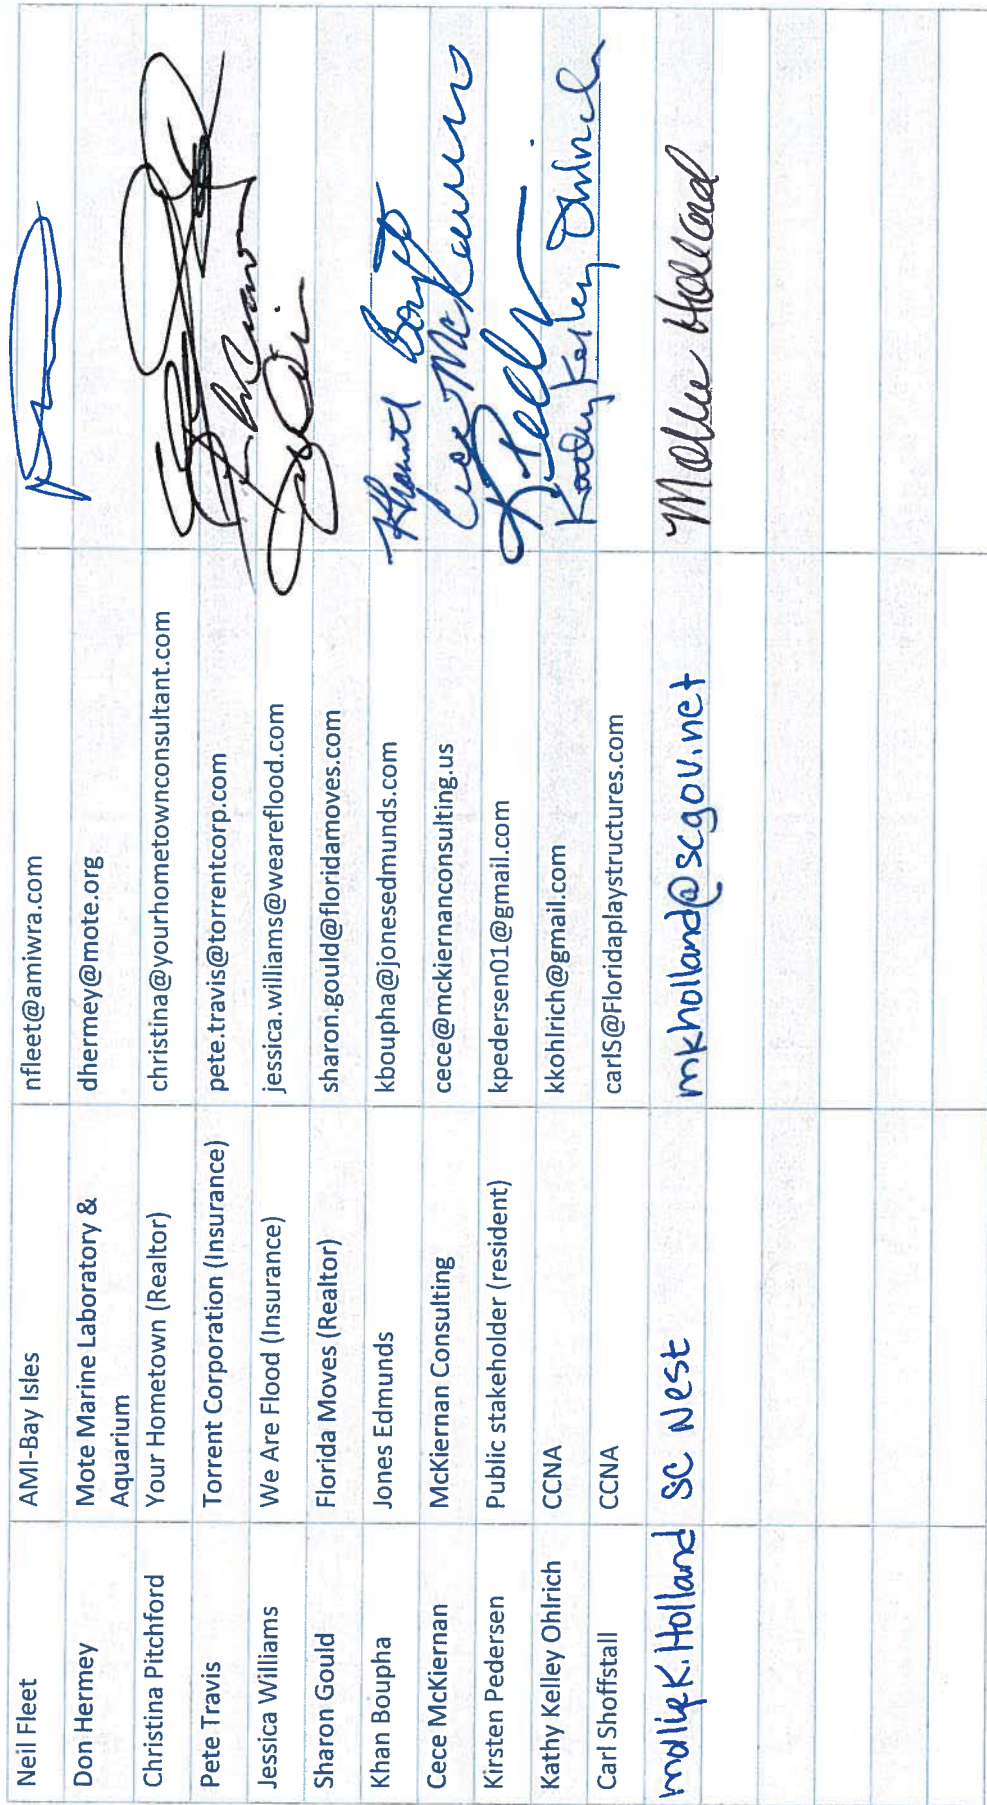 Neil Fleet AMI-Bay Isles nfleet@amiwra.com
Don Hermey Mote Marine Laboratory & dhermey@mote.org
Aquarium
Christina Pitchford Your Hometown (Realtor) christina@yourhometownconsultant.com
Pete Travis Torrent Corporation (Insurance) pete.travis@torrentcorp.com
Jessica Williams We Are Flood (Insurance) jessica.williams@weareflood.com
Sharon Gould Florida Moves (Realtor) sharon.gould@floridamoves.com
Khan Boupha Jones Edmunds kboupha@jonesedmunds.com
Cece McKiernan McKiernan Consulting cece@mckiernanconsulting.us Cece McKiernan
Kirsten Pedersen Public stakeholder (resident) kpedersen01@gmail.com
Kathy Kelley Ohlrich CCNA kkohlrich@gmail.com Kathy Kelley Ohlrich
Carl Shoffstall CCNA carlS@Floridaplaystructures.com
Mollie K. Holland SC Nest mkholland@scgov.net Mollie Holland